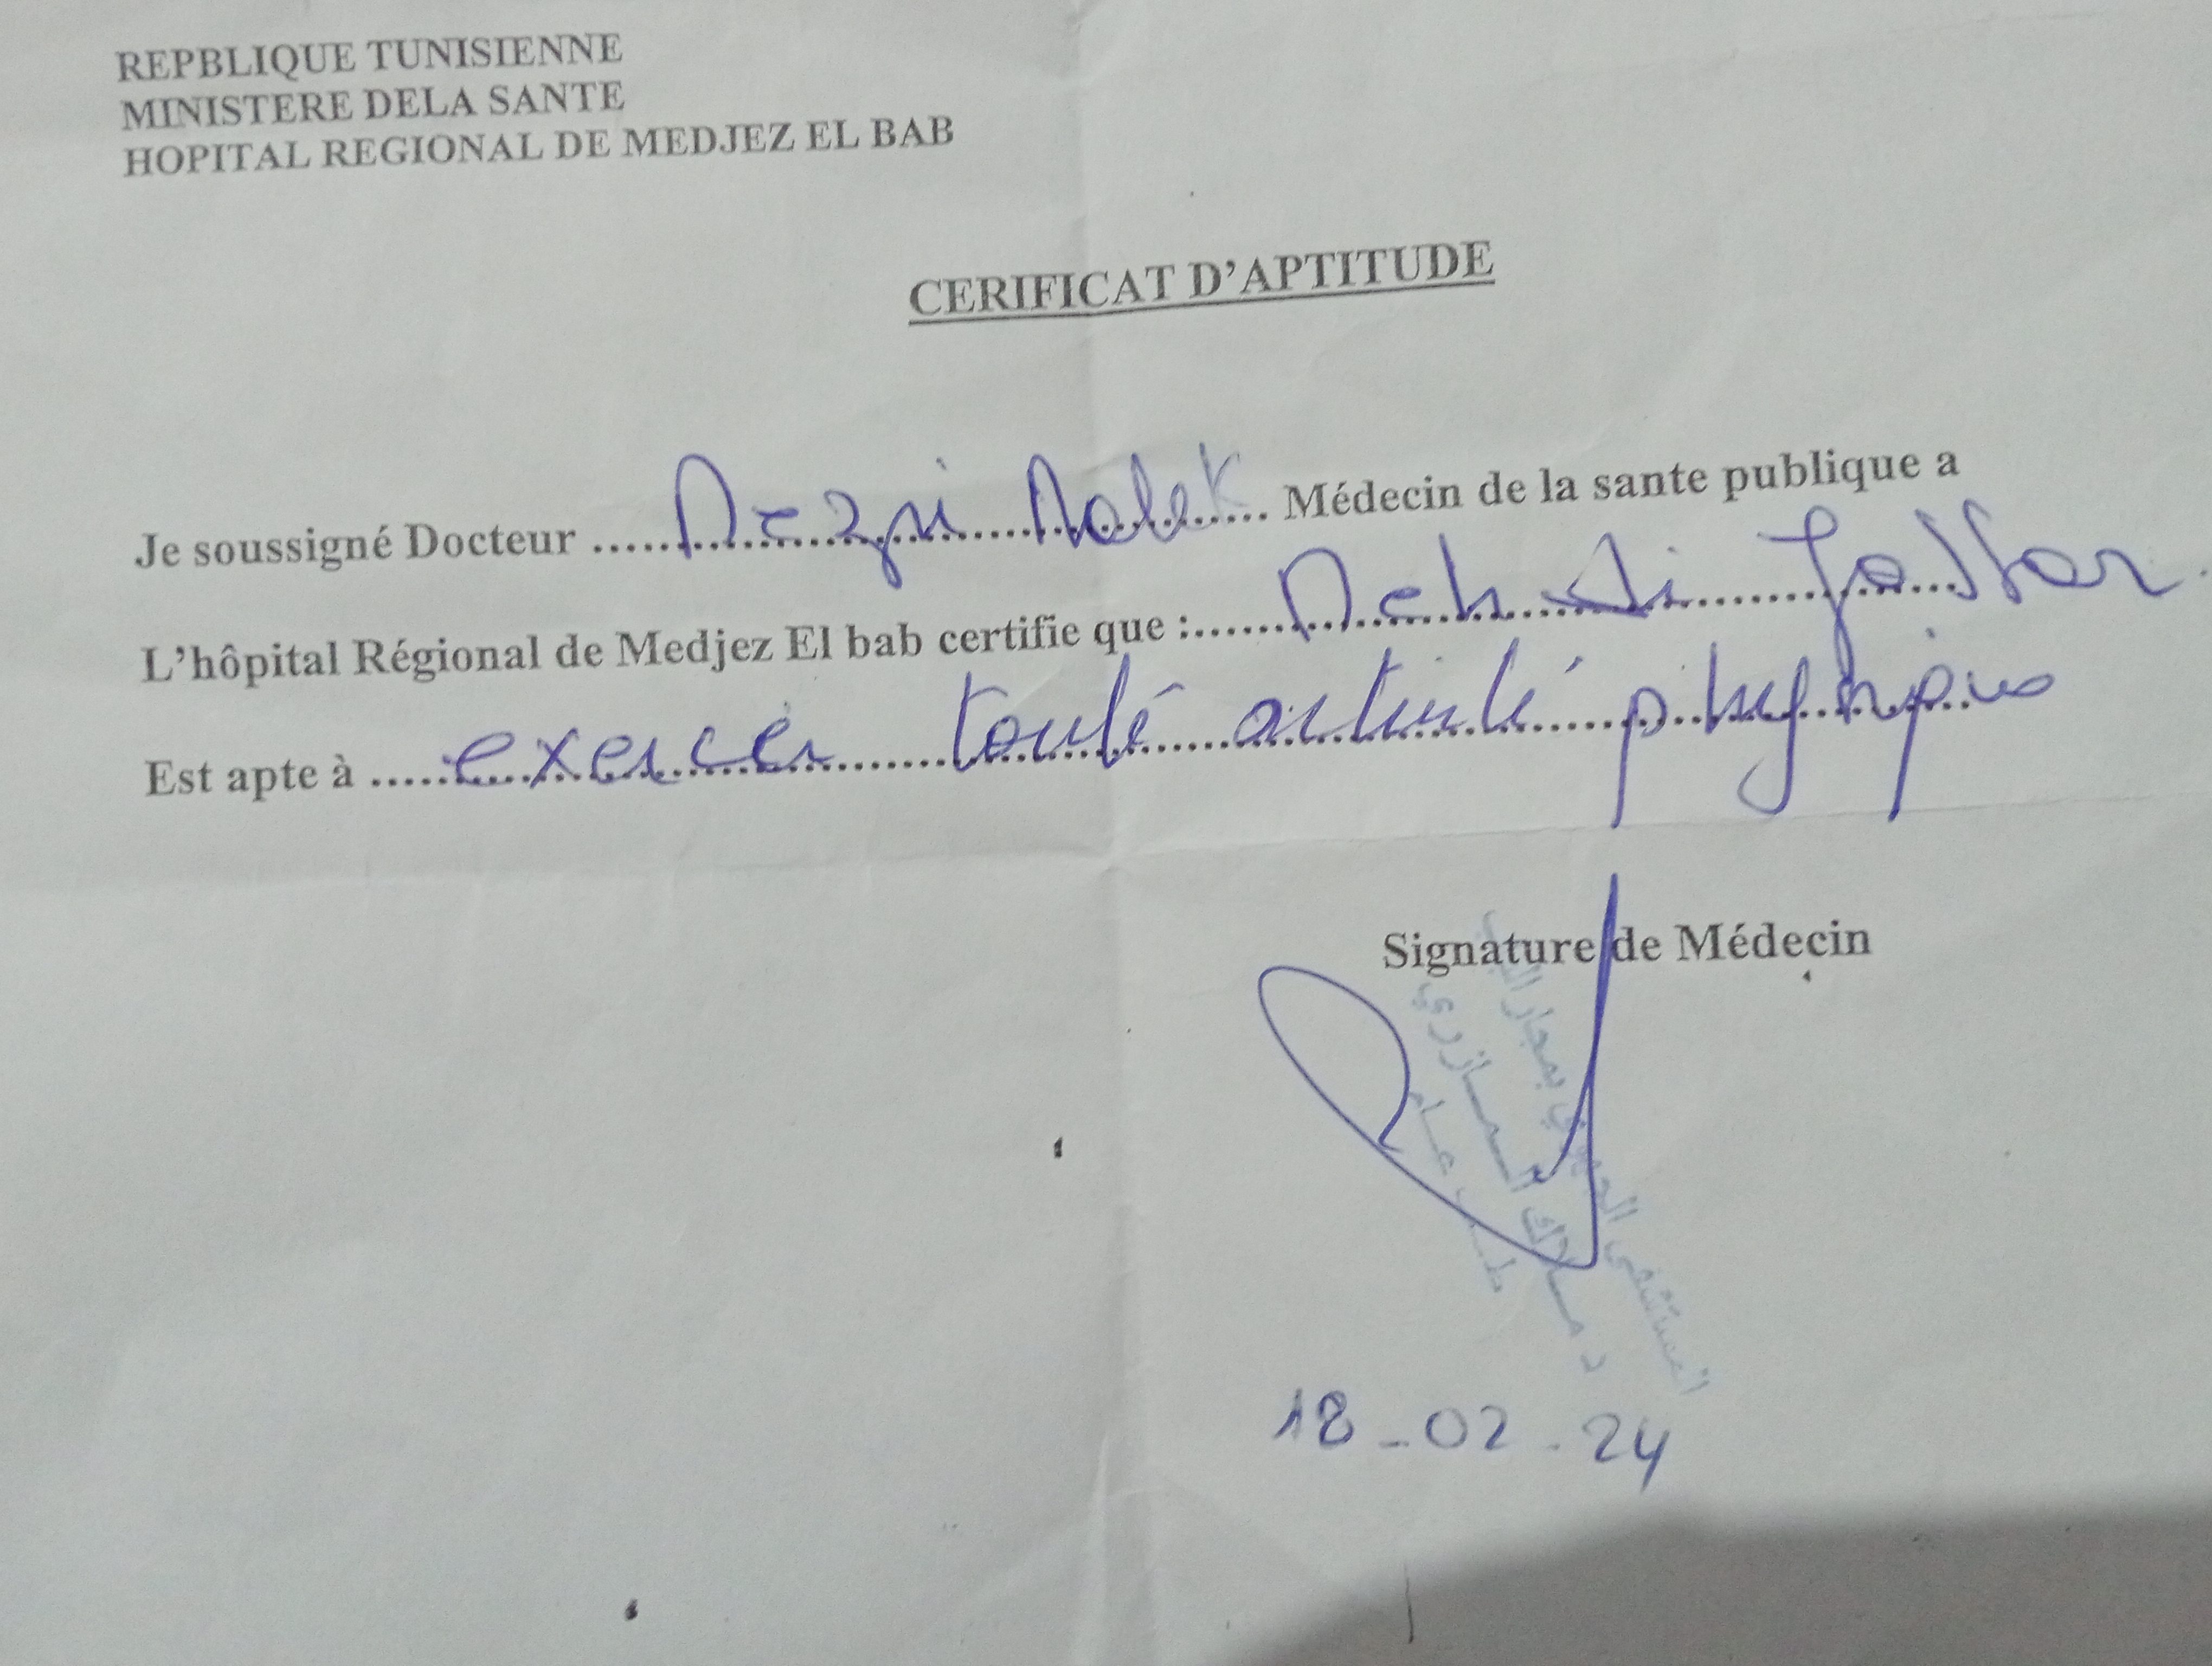 REPBLIQUE TUNISIENNE
MINISTERE DELA SANTE
HOPITAL REGIONAL DE MEDJEZ EL BAB
CERIFICAT D'APTITUDE
Je soussigné Docteur ..... Malek ..... Médecin de la sante publique a
L'hôpital Régional de Medjez El bab certifie que :..... Mehdi .....
Est apte à ..... exercer toute activité physique
Signature de Médecin
المستشفى الجهوي بمجاز الباب
د مــلاك
طبيب عــام
18-02-24